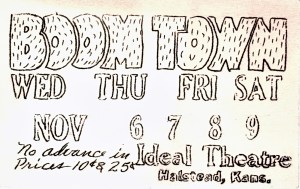 BOOM TOWN
WED THU FRI SAT
NOV 6 7 8 9
No advance in
Prices 10¢ & 25¢
Ideal Theatre
Halstead, Kans.